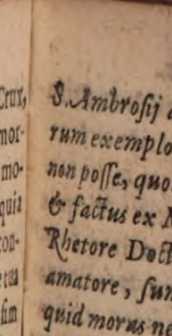 Crux,
mor-
mo-
quia
con-
sim
S. Ambrosij
rum exemplo
non posse, quo
& factus ex
Rhetore Doct
amatore, sun
quid moras ne